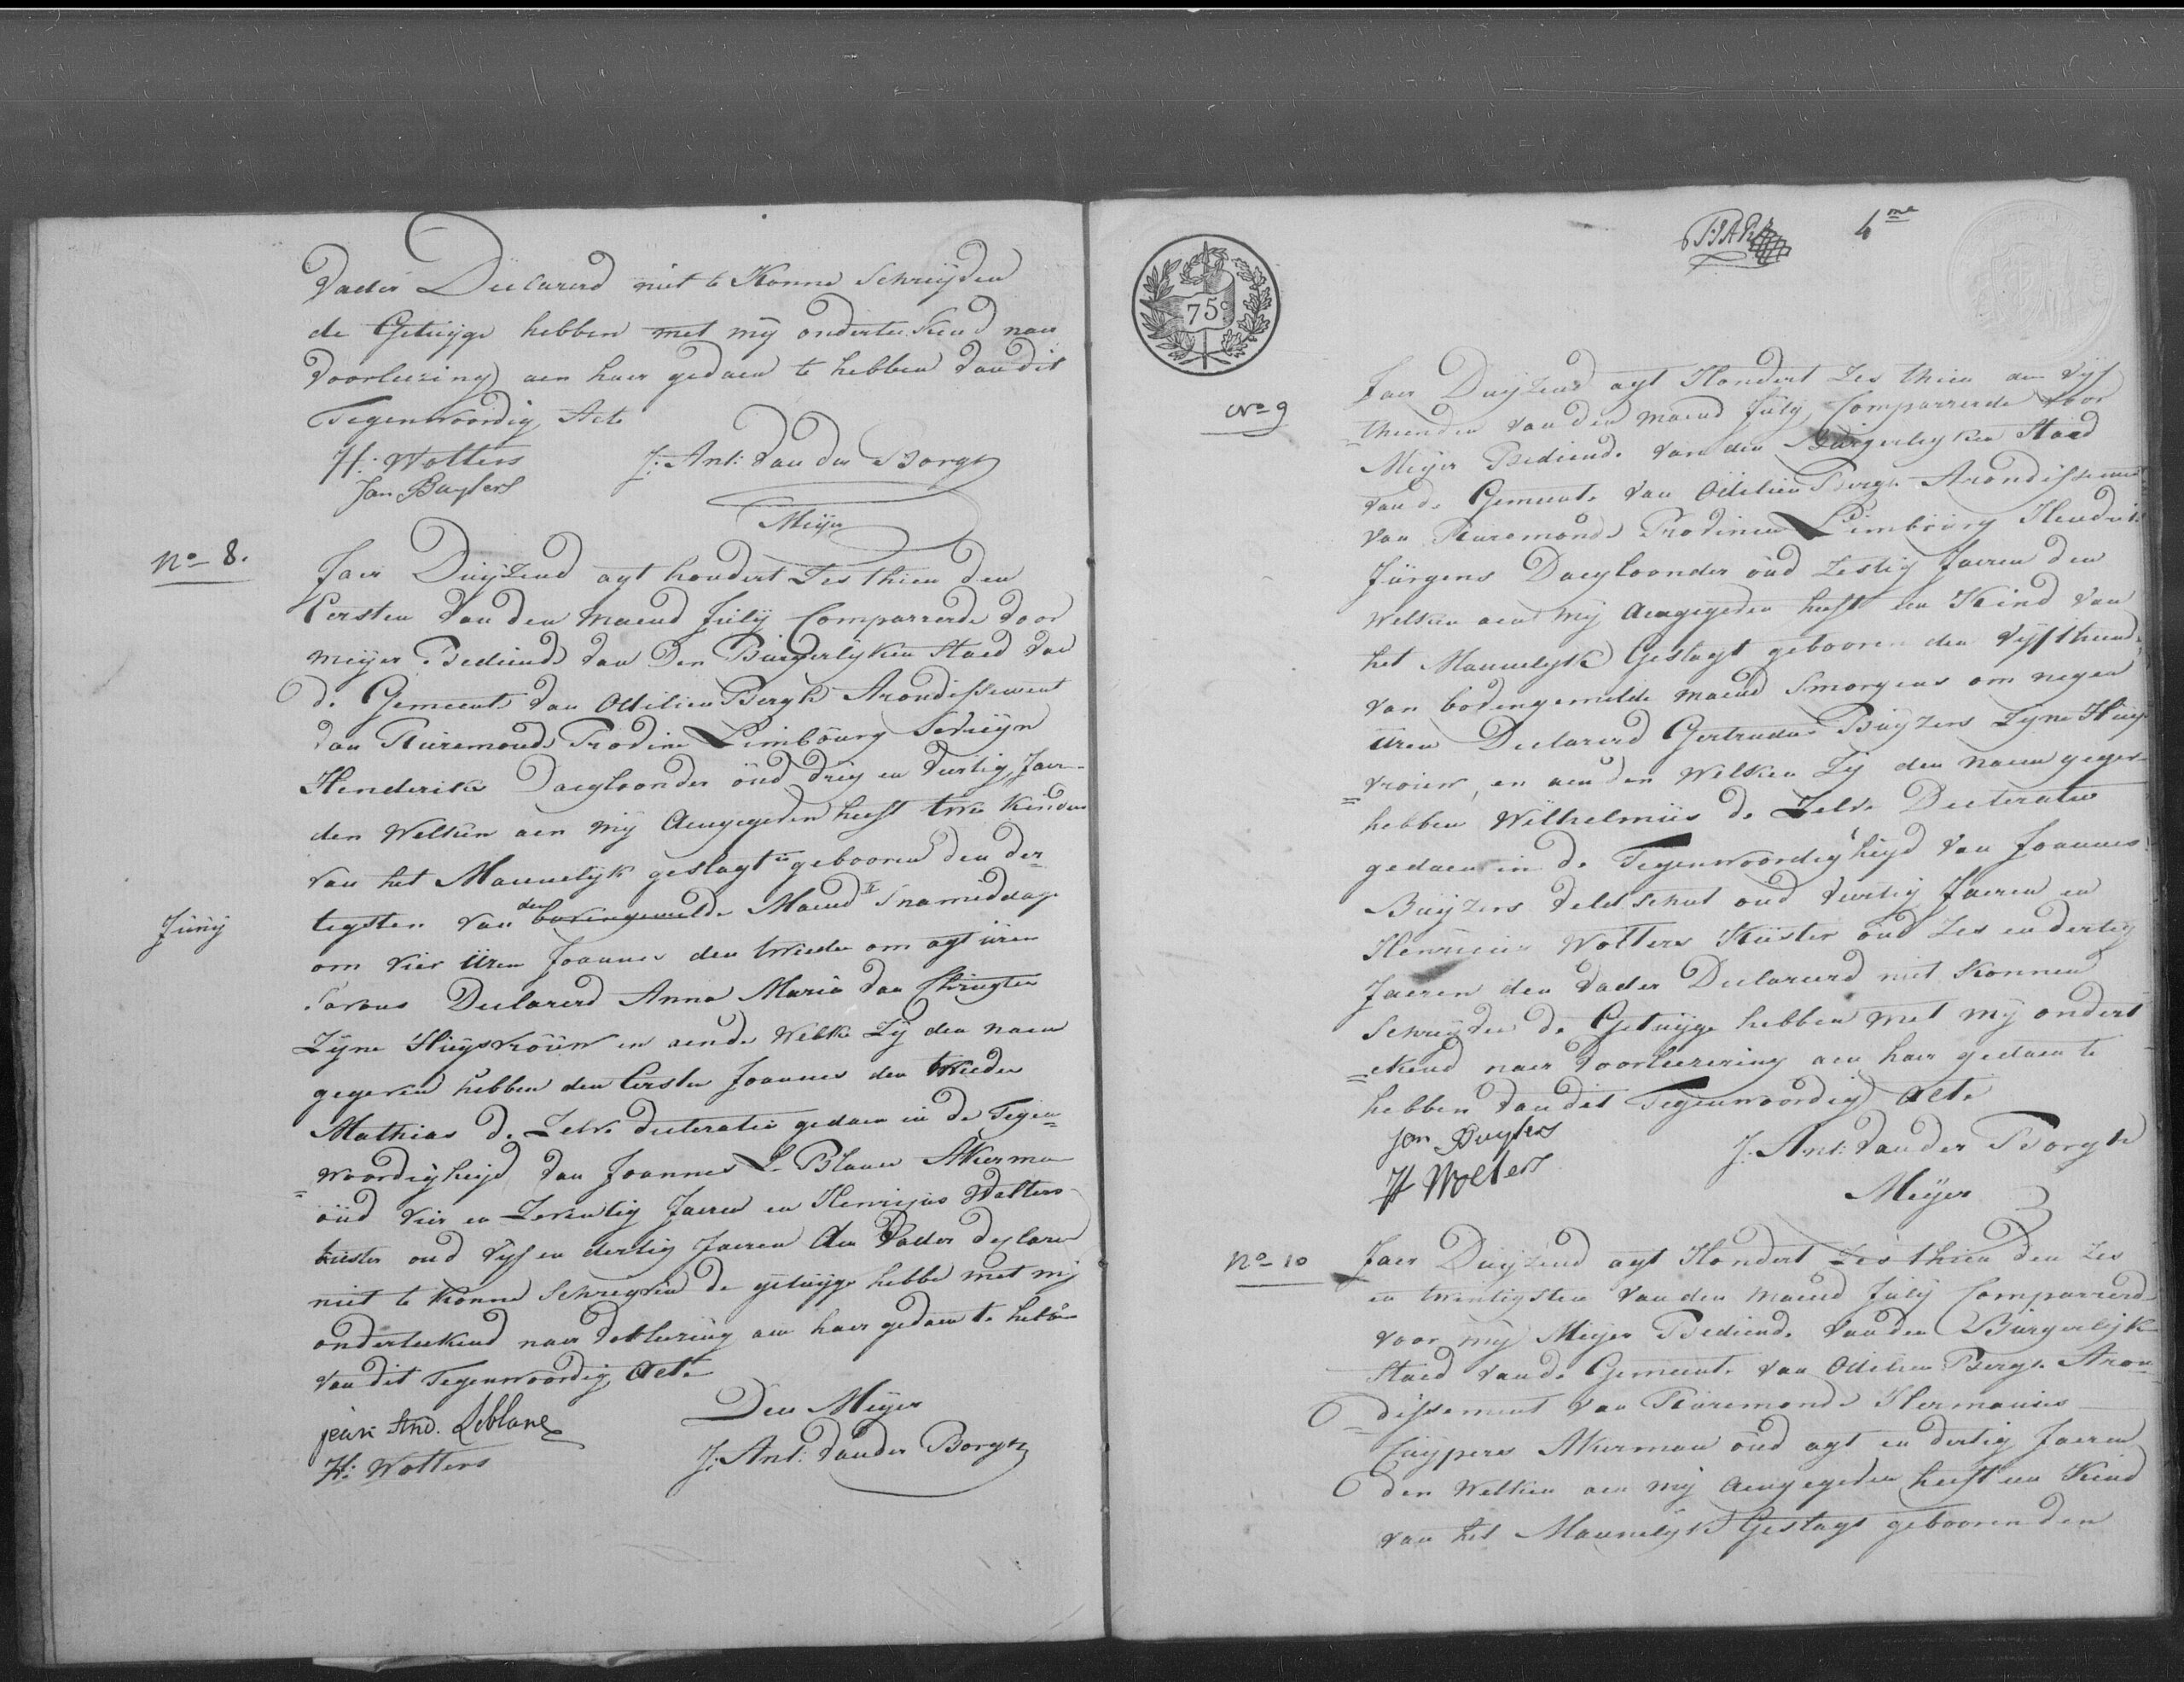 Vader Declarerd niet te Konne Schrijven
de Getuijge hebben met mij onderteekend naer
voorleesing aen haer gedaen te hebben van dit
Tegenwoordig Acte
H: Wolters J: Ant: van der Borgh
Jan Buysers
Meijer
No 8.
Jaer Duijzend agt hondert Zes thien den
Eersten van den maend Julij Comparrerde voor
meijer Bediende van Den Burgerlijken Staed van
de Gemeente van Odilien Bergh Arondissement
van Ruremonde Provine Limbourg
Henderik Dagloonder oud drij en dertig Jaer
den Welken aen mij Aengegeven heeft twe kinder
van het Mannelijk geslagt gebooren den der
tigsten van den bovengemelde Maend Snamiddags
Junij
om vier uren Joannes den tweeden om agt uren
Savons Declarerd Anna Maria van
Zijne Huijsvrouw en aende Welke Zij den naem
gegeven hebben den Eersten Joannes den tweeden
Mathias de Zelve decleratie gedaen in de Tegen=
=woordigheijd van Joannes Le Blanc Akerman
oud vier en Zeventig Jaeren en Henricus Wolters
kuster oud vijf en dertig Jaeren den Vader declarerd
niet te konne Schreijven de getuijge hebbe met mij
onderteekend naer voorleezing aen haer gedaen te hebben
van dit Tegenwoordig Acte
jean And. Leblanc Den Meijer
H: Wolters J: Ant: van der Borgh
4me
75c
No 9
Jaer Duijzend agt Hondert Zes thien den vijf
=thienden van den maend Julij Comparrerde voor
Meijer Bediende van den Burgerlijken Staed
van de Gemeente van Odilien Bergh Arondissement
van Ruremonde Provincie Limbourg Hendrik
Jurgens Daegloonder oud Zestig Jaeren den
Welken aen mij Aengegeven heeft een Kind van
het Mannelijk Geslagt gebooren den vijfthiend
van bovengemelde maend Smorgens om negen
uren Declarerd Gertrudus Buijzers Zijne Huijs
=vrouw, en aen den Welken Zij den naem gegev
hebben Wilhelmus de Zelve Decleratie
gedaen in de Tegenwoordigheijd van Joannes
Buijzers veldschut oud veertig Jaeren en
Henricus Wolters Kuster oud Zes en dertig
Jaeren den Vader Declarerd niet Konnen
Schreijven de Getuijge hebben met mij ondert
=ekend naer voorleezering aen haer gedaen te
hebben van dit Tegenwoordig Acte
Jan Buysers J: Ant: van der Borgh
H Wolters
Meijer
No 10
Jaer Duijzend agt Hondert Zes thien den Zes
en twentigsten van den maend Julij Comparrerd
voor mij Meijer Bediende van den Burgerlijk
Staed van de Gemeente van Odilien Bergh Aron=
=dissement van Ruremonde Hermanus
Cuijpers Akerman oud agt en dertig Jaeren
den Welken aen mij aengegeven heeft een Kind
van het Mannelijk Geslagt gebooren den